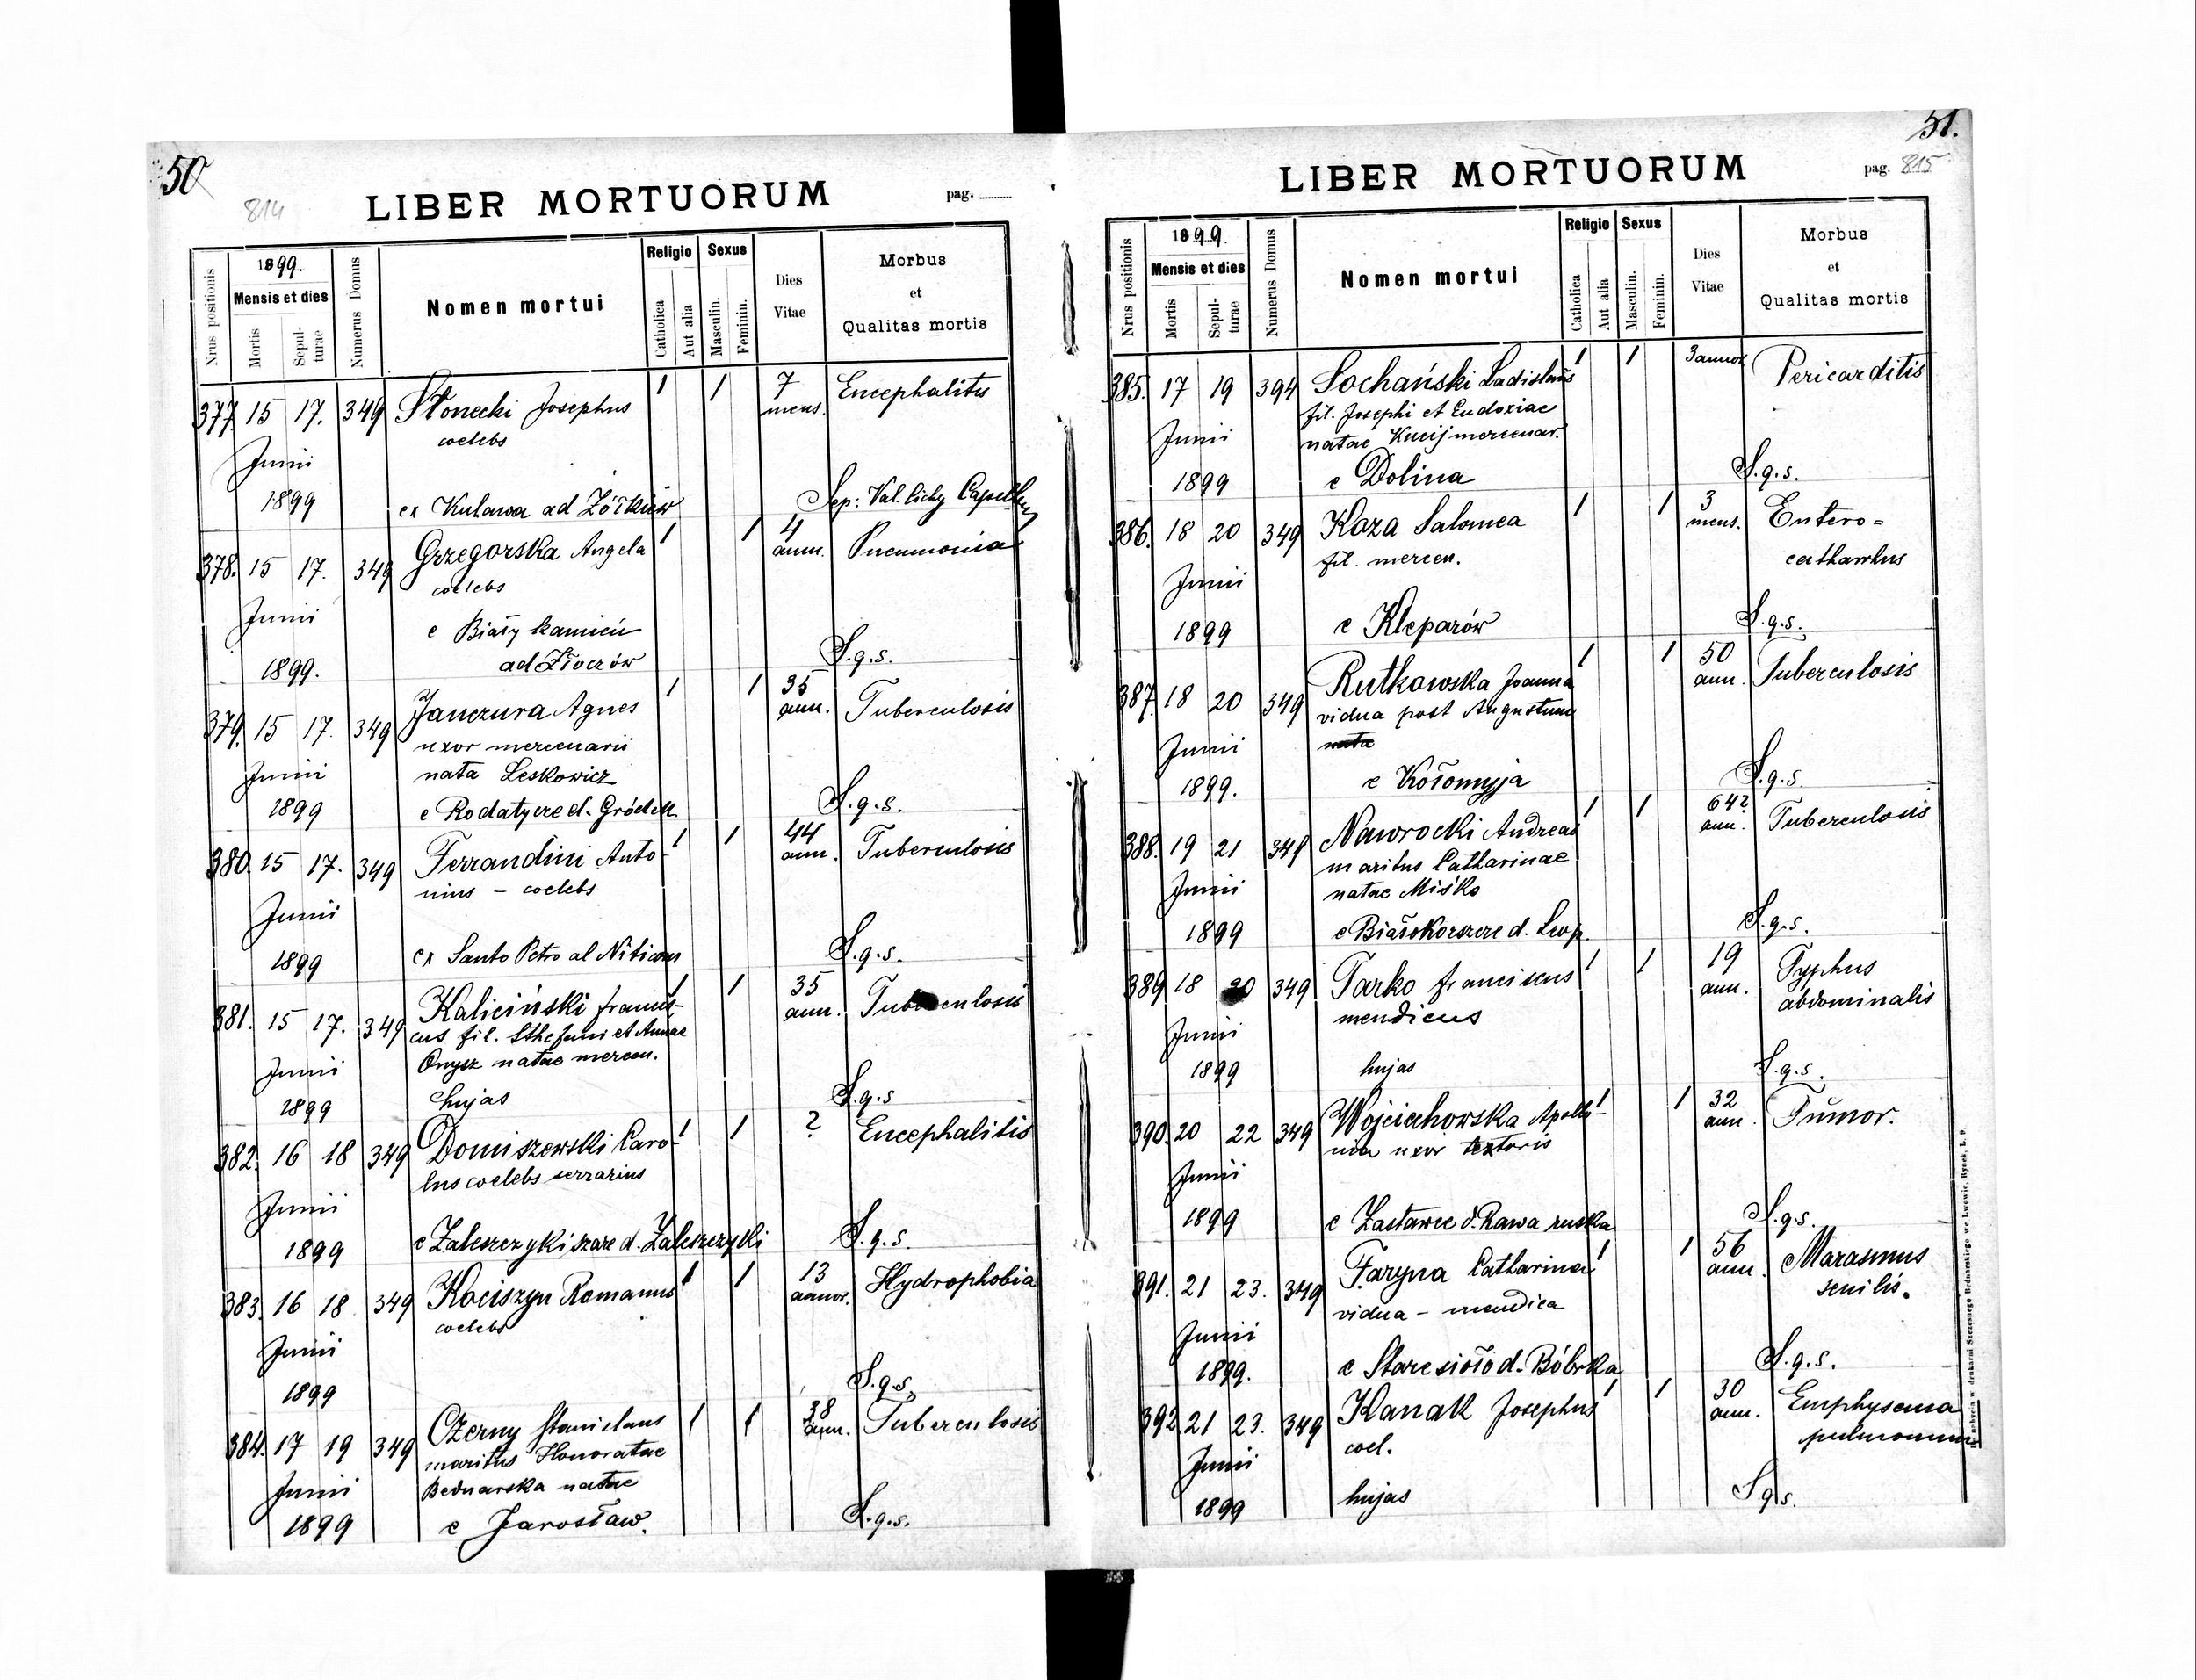 50
814
LIBER MORTUORUM
pag.
Nrus positionis
1899.
Mensis et dies
Mortis
Sepulturae
Numerus Domus
Nomen mortui
Religio
Catholica
Aut alia
Sexus
Masculin.
Feminin.
Dies Vitae
Morbus
et
Qualitas mortis
377. 15 17. 349 Słonecki Josephus 1 1 7 mens. Encephalitis
coelebs
Junii
1899 ex Kulawa ad Żółkiew Sep: Val. Cichy Capellan
378. 15 17. 349 Grzegorska Angela 1 1 4 ann. Pneumonia
coelebs
Junii
e Biały kamień
1899. ad Złoczów S.q.s.
379. 15 17. 349 Janczura Agnes 1 1 35 ann. Tuberculosis
uxor mercenarii
Junii nata Leskowicz
1899 e Rodatycze d. Gródek S.q.s.
380. 15 17. 349 Ferrandini Anto- 1 1 44 ann. Tuberculosis
nius - coelebs
Junii
1899 ex Santo Petro al S.q.s.
381. 15 17. 349 Kaliciński francis- 1 1 35 ann. Tuberculosis
cus fil. Sthefani et Annae
Junii Onysz natae mercen.
1899 hujas S.q.s
382. 16 18 349 Domiszewski Caro- 1 1 ? Encephalitis
lus coelebs serrarius
Junii
1899 e Zaleszczyki szare d. Zaleszczyki S.q.s.
383. 16 18 349 Kociszyn Romanus 1 1 13 annor. Hydrophobia
coelebs
Junii
1899 S.q.s.
384. 17 19 349 Czerny Stanislaus 1 1 38 ann. Tuberculosis
maritus Honoratae
Junii Bednarska natae
1899 e Jarosław. S.q.s.
51.
LIBER MORTUORUM
pag. 815
Nrus positionis
1899.
Mensis et dies
Mortis
Sepulturae
Numerus Domus
Nomen mortui
Religio
Catholica
Aut alia
Sexus
Masculin.
Feminin.
Dies Vitae
Morbus
et
Qualitas mortis
385. 17 19 394 Sochański Ladislaus 1 1 3 annor Pericarditis
fil. Josephi et Eudoxiae
Junii natae Kucij mercenar.
1899 e Dolina S.q.s.
386. 18 20 349 Koza Salomea 1 1 3 mens. Entero=
fil. mercen. catharrhus
Junii
1899 e Kleparów S.q.s.
387. 18 20 349 Rutkowska Joanna 1 1 50 ann. Tuberculosis
vidua post Augustum
Junii nata
1899. e Kołomyja S.q.s.
388. 19 21 349 Nawrocki Andreas 1 1 64? ann. Tuberculosis
maritus Catharinae
Junii natae Miśko
1899 e Białohorszcze d. Leop. S.q.s.
389 18 20 349 Tarko franciscus 1 1 19 ann. Typhus
mendicus abdominalis
Junii
1899 hujas S.q.s.
390. 20 22 349 Wojciechowska Apollo- 1 1 32 ann. Tumor.
nia uxor textoris
Junii
1899 e Zastawce d. Rawa ruska S.q.s.
391. 21 23. 349 Faryna Catharina 1 1 56 ann. Marasmus
vidua - mendica senilis.
Junii
1899. e Staresioło d. Bóbrka S.q.s.
392. 21 23. 349 Kanak Josephus 1 1 30 ann. Emphysema
coel. pulmonum
Junii
1899 hujas S.q.s.